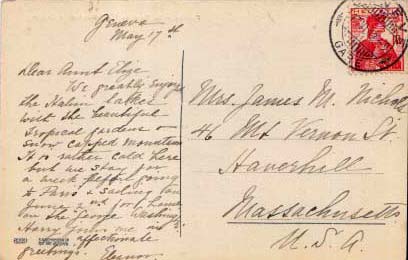 Geneva
May 17th
Dear Aunt Elize
We greatly enjoyed
the Italian lakes
with the beautiful
tropical gardens &
snow capped mountains
It is rather cold here
but we stay
a week before going
to Paris & sailing on
June 2nd for home
on the George Washing
Harry joins me in
affectionate
greetings. Eleanor.
Mrs. James M. Nichols
46 Mt Vernon St.
Haverhill
Massachusetts
U.S.A.